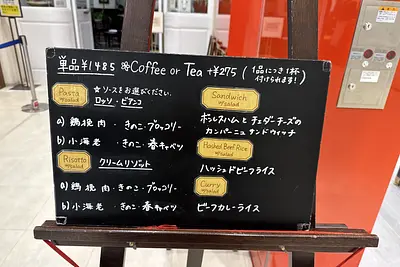 単品¥1485 ※Coffee or Tea +¥275 (1品につき1杯付けられます!)
Pasta
w/salad
☆ソースをお選びください。
ロッソ・ビアンコ
a) 鶏挽肉・きのこ・ブロッコリー
b) 小海老・きのこ・春キャベツ
Risotto
w/salad
クリームリゾット
a) 鶏挽肉・きのこ・ブロッコリー
b) 小海老・きのこ・春キャベツ
Sandwich
w/salad
ボンレスハムとチェダーチーズの
カンパーニュサンドウィッチ
Hashed Beef Rice
w/salad
ハッシュドビーフライス
Curry
w/salad
ビーフカレーライス